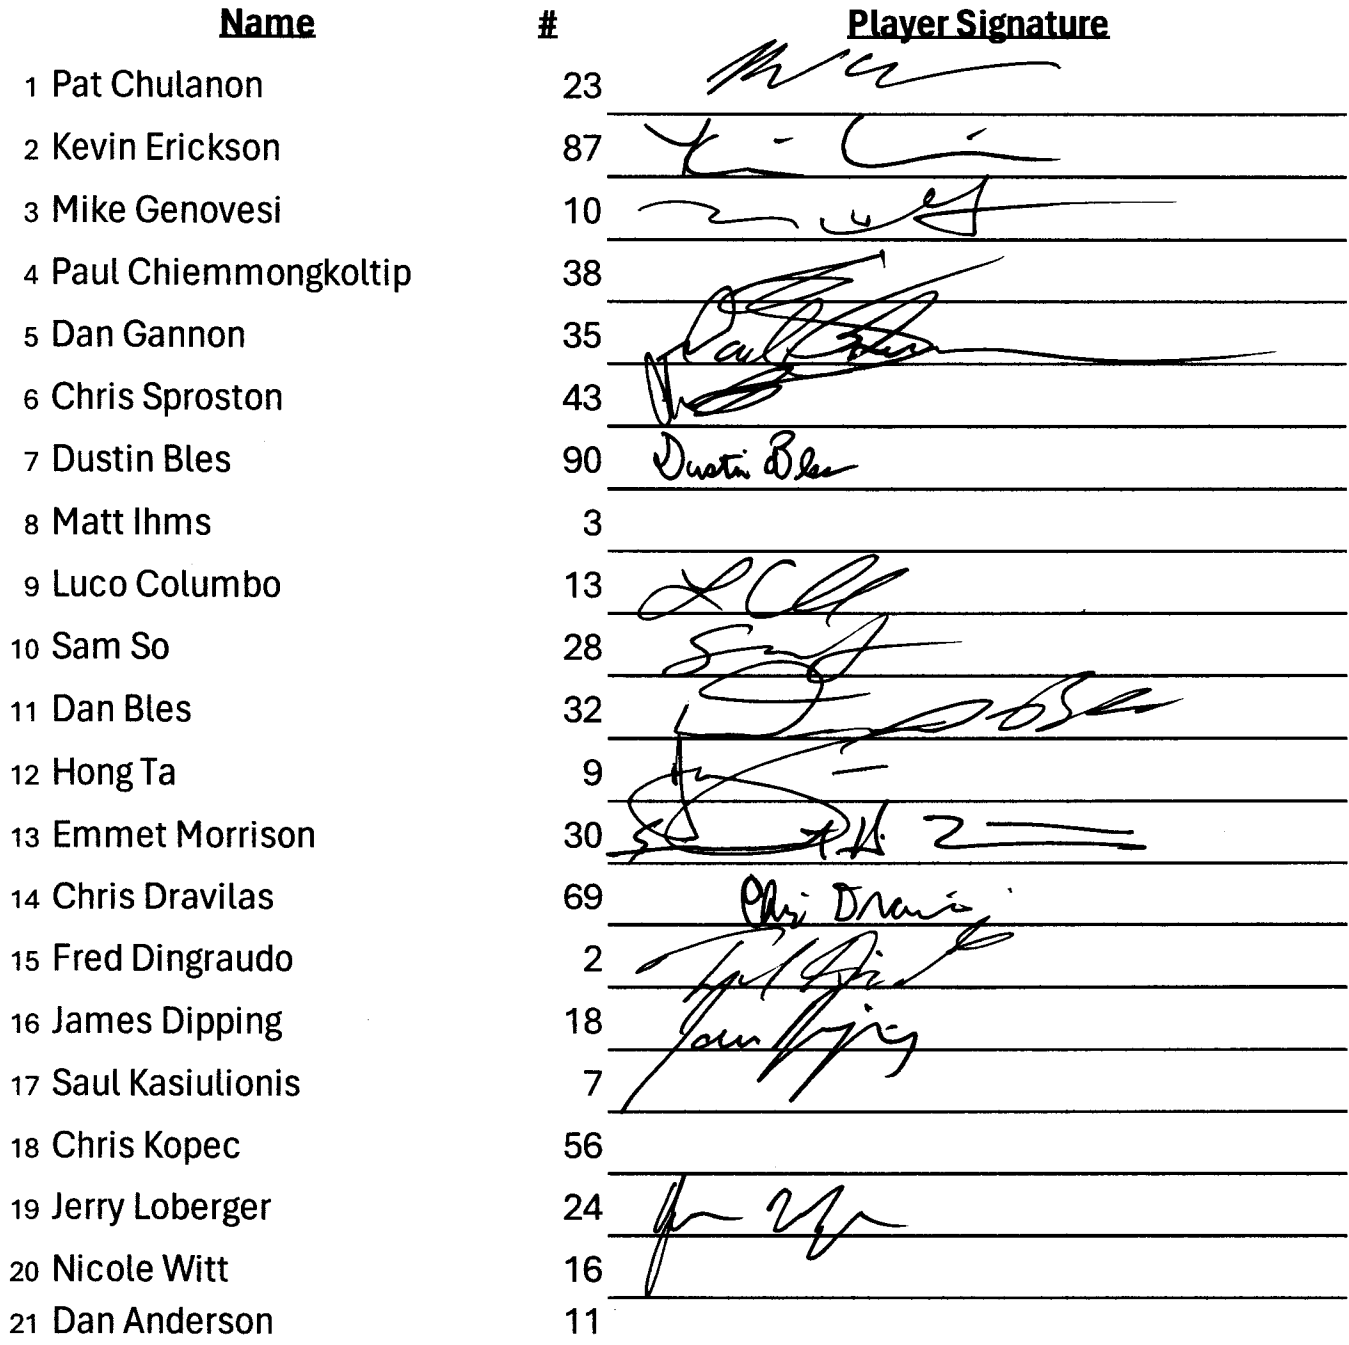 Name # Player Signature
1 Pat Chulanon 23
2 Kevin Erickson 87
3 Mike Genovesi 10
4 Paul Chiemmongkoltip 38
5 Dan Gannon 35
6 Chris Sproston 43
7 Dustin Bles 90 Dustin Bles
8 Matt Ihms 3
9 Luco Columbo 13
10 Sam So 28
11 Dan Bles 32
12 Hong Ta 9
13 Emmet Morrison 30
14 Chris Dravilas 69
15 Fred Dingraudo 2
16 James Dipping 18
17 Saul Kasiulionis 7
18 Chris Kopec 56
19 Jerry Loberger 24
20 Nicole Witt 16
21 Dan Anderson 11